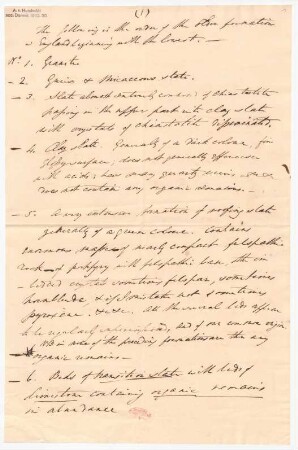 (1)
The following is the order of the Stone formation
in England beginning with the lowest. —
No 1. Granite
- 2. Gneiss & Micaceous slate.
- 3. Slate almost entirely of chiastolite
in the upper part into clay slate
with crystals of chiastolite disseminated.
- 4. Clay slate. Generally of a dark colour,
surface, does not generally effervesce
with acids; has
does not contain any organic remains. —
- 5. A very extensive formation of roofing slate
generally of a green colour. Contains
masses of nearly compact felspathic
rock & porphyry with felspathic base, the
crystals sometimes felspar, sometimes
hornblende & sometimes
pyroxene. All the several beds appear
to be regularly and of one common origin
NB in none of the preceding formations are there any
organic remains —
- 6. Beds of transition slate with beds of
limestone containing organic remains
in abundance